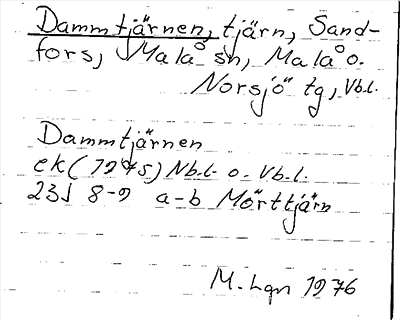 Dammtjärnen, tjärn, Sand-
fors, Malå sn, Malå o.
Norsjö tg, Vb.l.
Dammtjärnen
ek (1945) Nb.l. o. Vb.l.
23J 8-9 a-b Mörttjärn
M. Lgn 1976